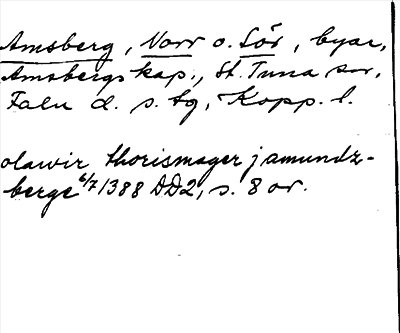 Amsberg, Norr o. Sör, byar,
Amsbergs kap., St. Tuna sn,
Falu d. s. tg, Kopp. l.
olawir thorismager j amundz-
berge 6/7 1388 DD2, s. 8 or.